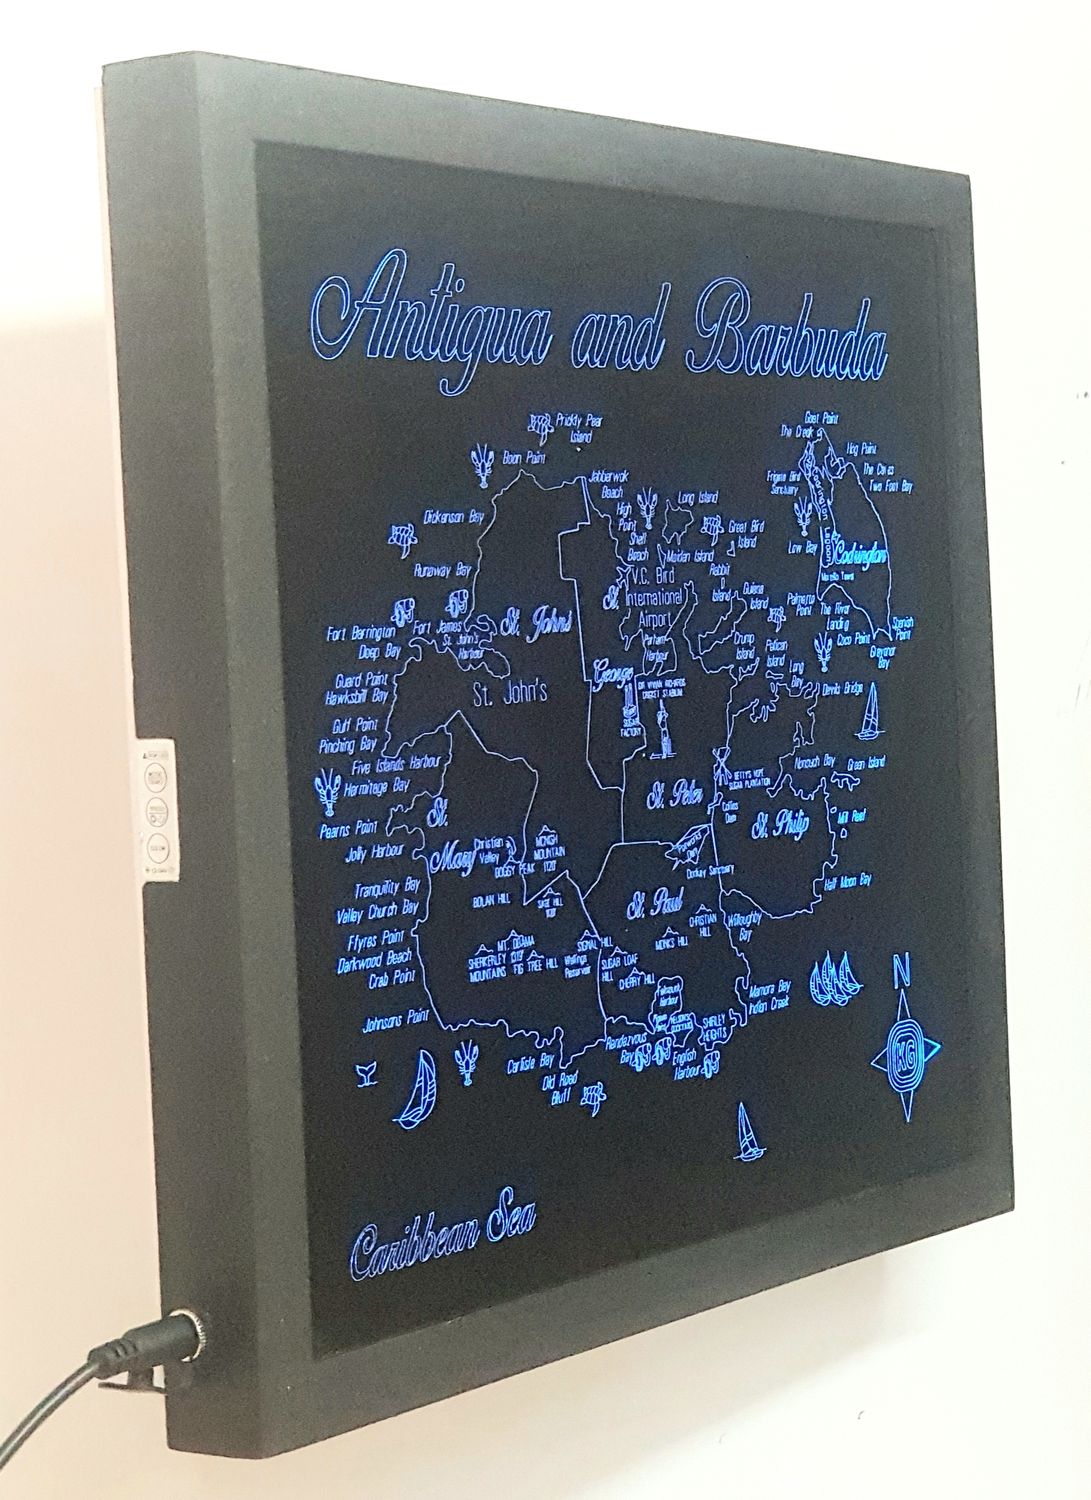 Antigua and Barbuda
Prickly Pear
Island
Boon Point
Goat Point
The Creek
Hog Point
The Caves
Two Foot Bay
Frigate Bird
Sanctuary
Codrington
Lagoon
Low Bay
Codrington
Palmetto
Point
The River
Landing
Coco Point
Spanish
Point
Gravenor
Bay
Jabberwok
Beach
High
Point
Shell
Beach
Long Island
Great Bird
Island
Maiden Island
Rabbit
Island
Guiana
Island
Dickenson Bay
Runaway Bay
V.C. Bird
International
Airport
Parham
Harbour
Crump
Island
Pelican
Island
Long
Bay
Devils Bridge
St. Johns
St.
George
Fort Barrington
Fort James
St. John's
Harbour
Deep Bay
Guard Point
Hawksbill Bay
St. John's
SIR VIVIAN RICHARDS
CRICKET STADIUM
SUGAR
FACTORY
Gulf Point
Pinching Bay
Five Islands Harbour
Hermitage Bay
Nonsuch Bay
Green Island
BETTY'S HOPE
SUGAR PLANTATION
St. Peter
Collins
Dam
St. Philip
Mill Reef
Pearns Point
Jolly Harbour
St.
Mary
Christian
Valley
MCNISH
MOUNTAIN
1120'
BOGGY PEAK
Potworks
Dam
Donkey Sanctuary
Half Moon Bay
Tranquility Bay
Valley Church Bay
BOLAN HILL
SAGE HILL
St. Paul
CHRISTIAN
HILL
Willoughby
Bay
Ffyres Point
Darkwood Beach
Crab Point
MT. OBAMA
1319'
SHERKERLEY
MOUNTAINS
FIG TREE HILL
SIGNAL HILL
Wallings
Reservoir
SUGAR LOAF
HILL
MONKS HILL
CHERRY HILL
Falmouth
Harbour
Pigeon
Point
NELSON'S
DOCKYARD
SHIRLEY
HEIGHTS
Mamora Bay
Indian Creek
Johnsons Point
Carlisle Bay
Old Road
Bluff
Rendezvous
Bay
English
Harbour
N
KG
Caribbean Sea